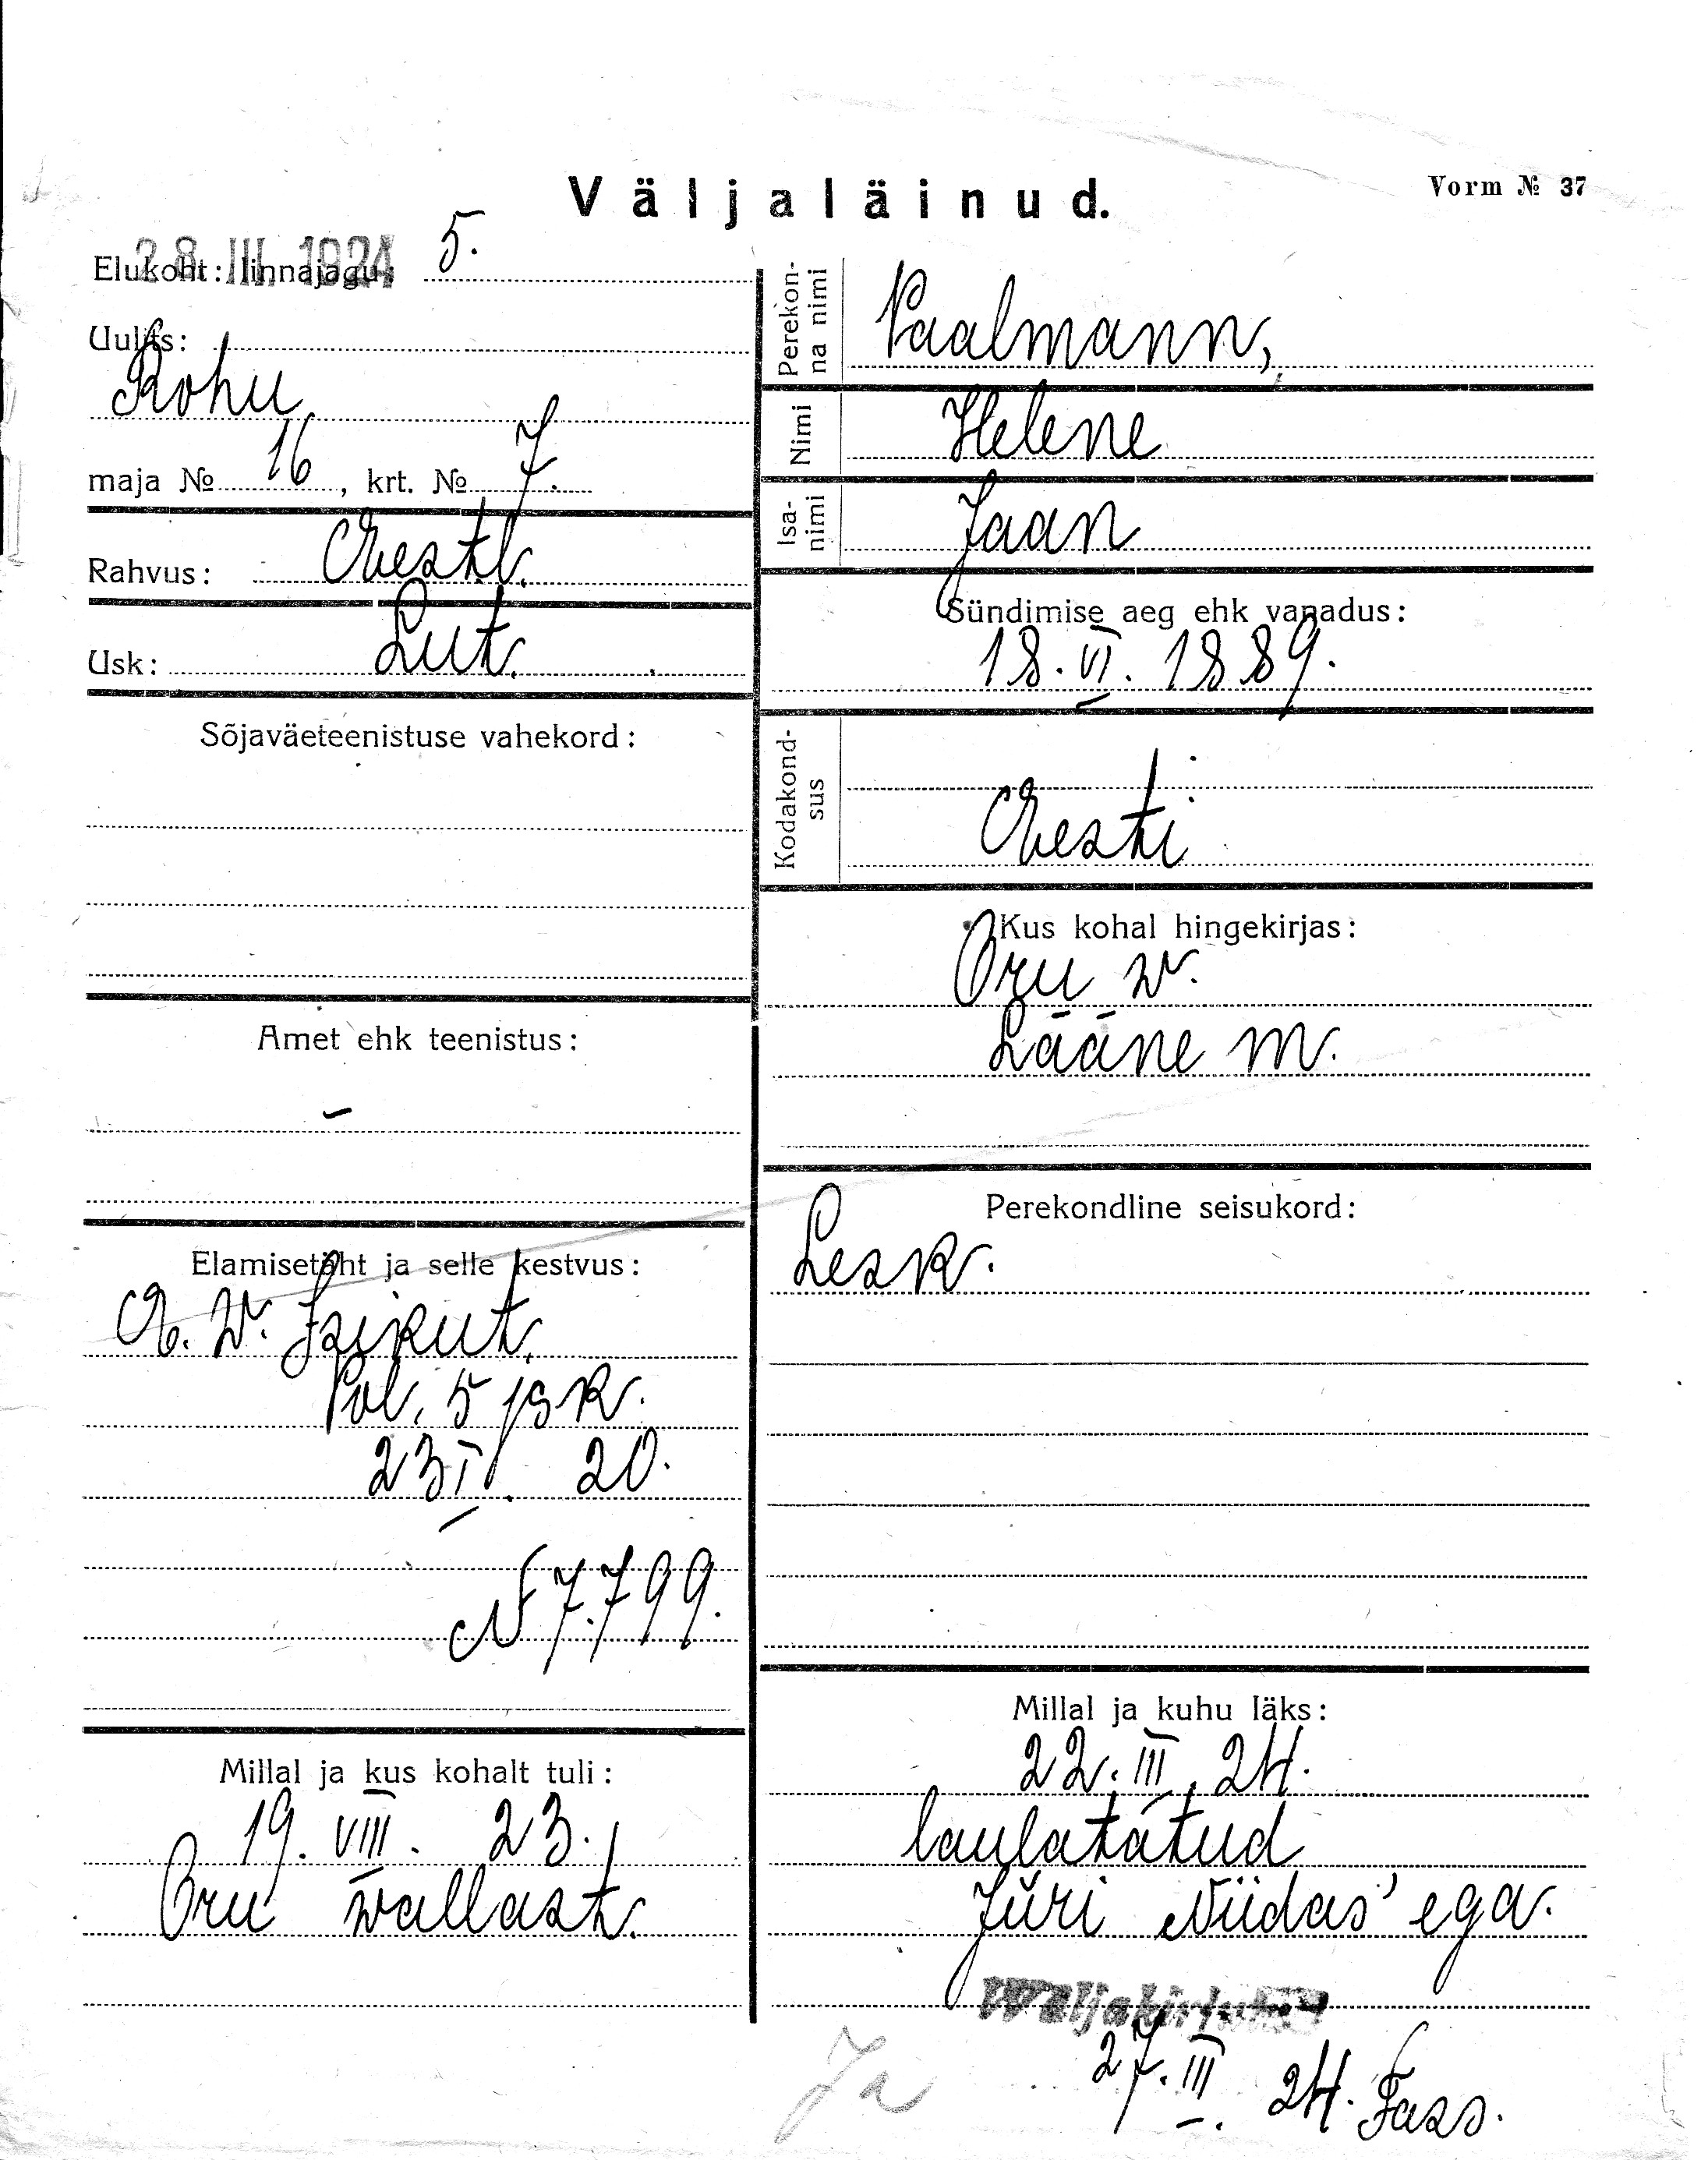 Väljaläinud.
Vorm № 37
28. III. 1924
Elukoht: linnajagu: 5.
Uulits:
Rohu
maja № 16, krt. № 7.
Rahvus: Eestl.
Usk: Lut.
Sõjaväeteenistuse vahekord:
Amet ehk teenistus:
–
Elamisetäht ja selle kestvus:
E. W. Isikut.
Pol. 5 jsk.
23 I. 20.
N 7.799.
Millal ja kus kohalt tuli:
19. VIII. 23.
Oru wallast.
Perekonna nimi
Paalmann,
Nimi
Helene
Isa-nimi
Jaan
Sündimise aeg ehk vanadus:
18. VI. 1889.
Kodakond-sus
Eesti
Kus kohal hingekirjas:
Oru w.
Lääne m.
Perekondline seisukord:
Lesk.
Millal ja kuhu läks:
22. III. 24.
laulatatud
Jüri Niidas'ega.
Wäljakirjutatud
27. III. 24. Fass.
Ja